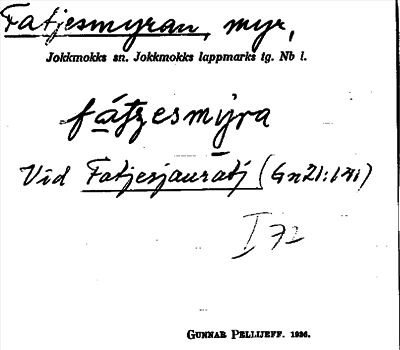 Fatjesmyran, myr,
Jokkmokks sn. Jokkmokks lappmarks tg. Nb l.
fátzesmyra
Vid Fatjesjauratj (Gn21:141)
I 72
GUNNAR PELLIJEFF. 1936.